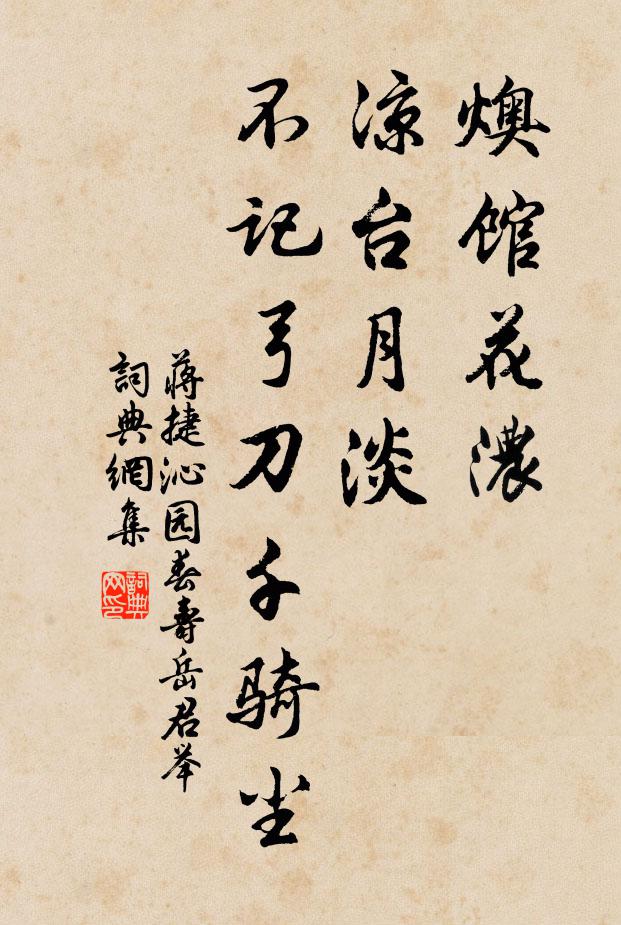 燠馆花濃
凉台月淡
不记弓刀千骑尘
蔣捷沁园春壽岳君举
詞典網集
詞典网印